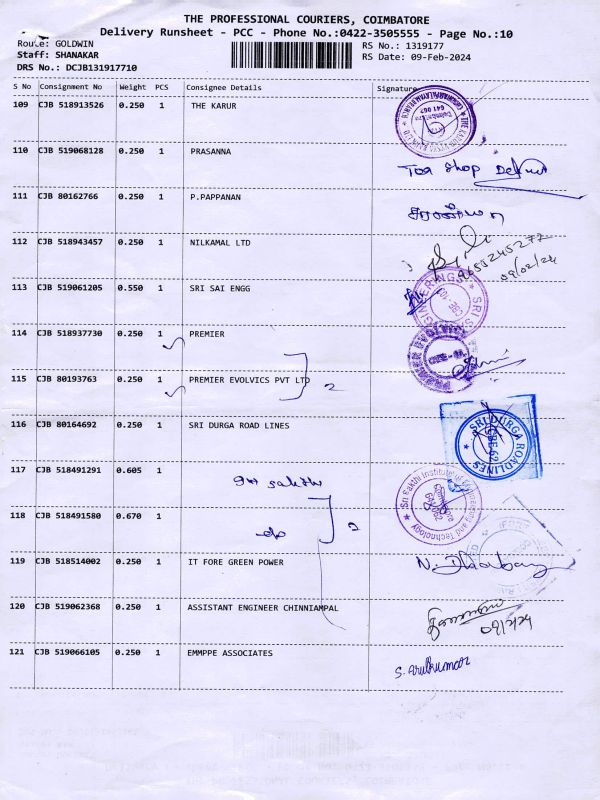 THE PROFESSIONAL COURIERS, COIMBATORE
Delivery Runsheet - PCC - Phone No.:0422-3505555 - Page No.:10
Route: GOLDWIN
RS No.: 1319177
Staff: SHANAKAR
RS Date: 09-Feb-2024
DRS No.: DCJB131917710
S No Consignment No Weight PCS Consignee Details Signature
109 CJB 518913526 0.250 1 THE KARUR
641 062
110 CJB 519068128 0.250 1 PRASANNA
Tea Shop
111 CJB 80162766 0.250 1 P.PAPPANAN
சரண்யா
112 CJB 518943457 0.250 1 NILKAMAL LTD
9655245277
09/02/24
113 CJB 519061205 0.550 1 SRI SAI ENGG
114 CJB 518937730 0.250 1 PREMIER
PREMIER EVOLVICS
115 CJB 80193763 0.250 1 PREMIER EVOLVICS PVT LTD 2
116 CJB 80164692 0.250 1 SRI DURGA ROAD LINES
* SRI DURGA ROADLINES *
117 CJB 518491291 0.605 1
Sri Sakthi
Sri Sakthi Institute of Engineering and Technology
Coimbatore
641 062
118 CJB 518491580 0.670 1
do 2
119 CJB 518514002 0.250 1 IT FORE GREEN POWER
120 CJB 519062368 0.250 1 ASSISTANT ENGINEER CHINNIAMPAL
09/2/24
121 CJB 519066105 0.250 1 EMMPPE ASSOCIATES
S. Arulkumar